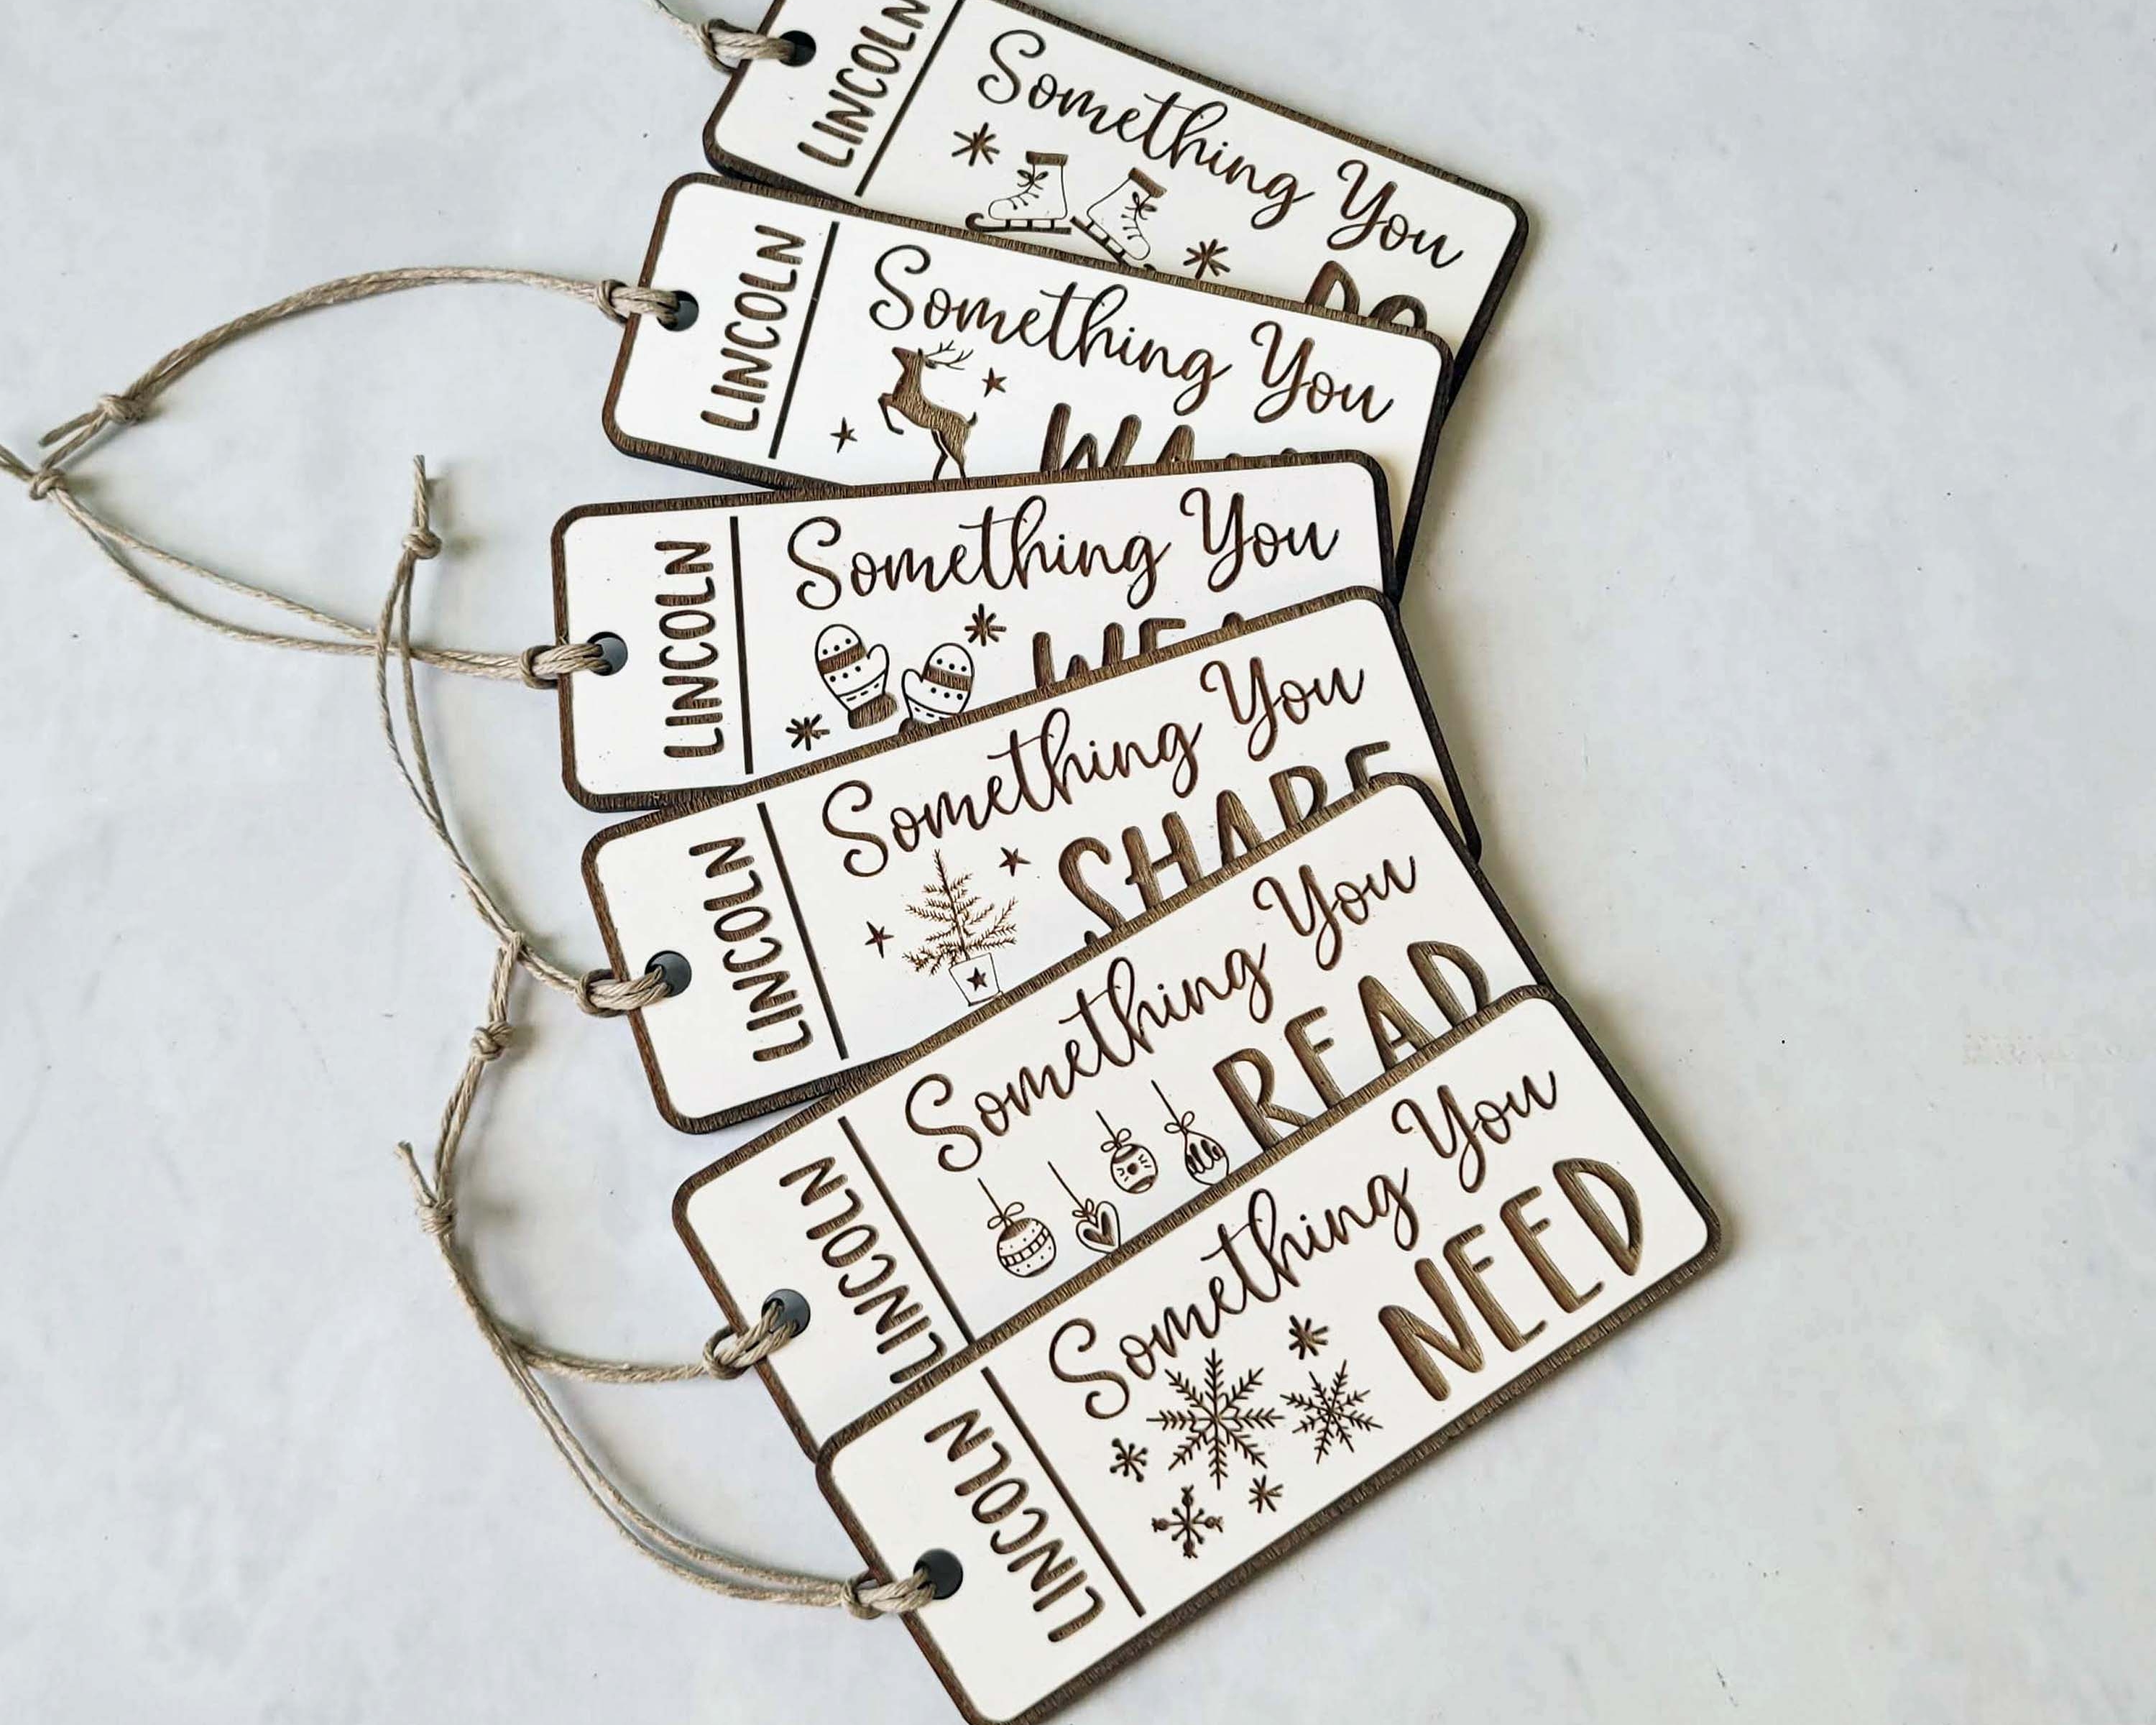 LINCOLN
Something You
DO
LINCOLN
Something You
LINCOLN
Something You
LINCOLN
Something You
SHARE
LINCOLN
Something You
READ
LINCOLN
Something You
NEED